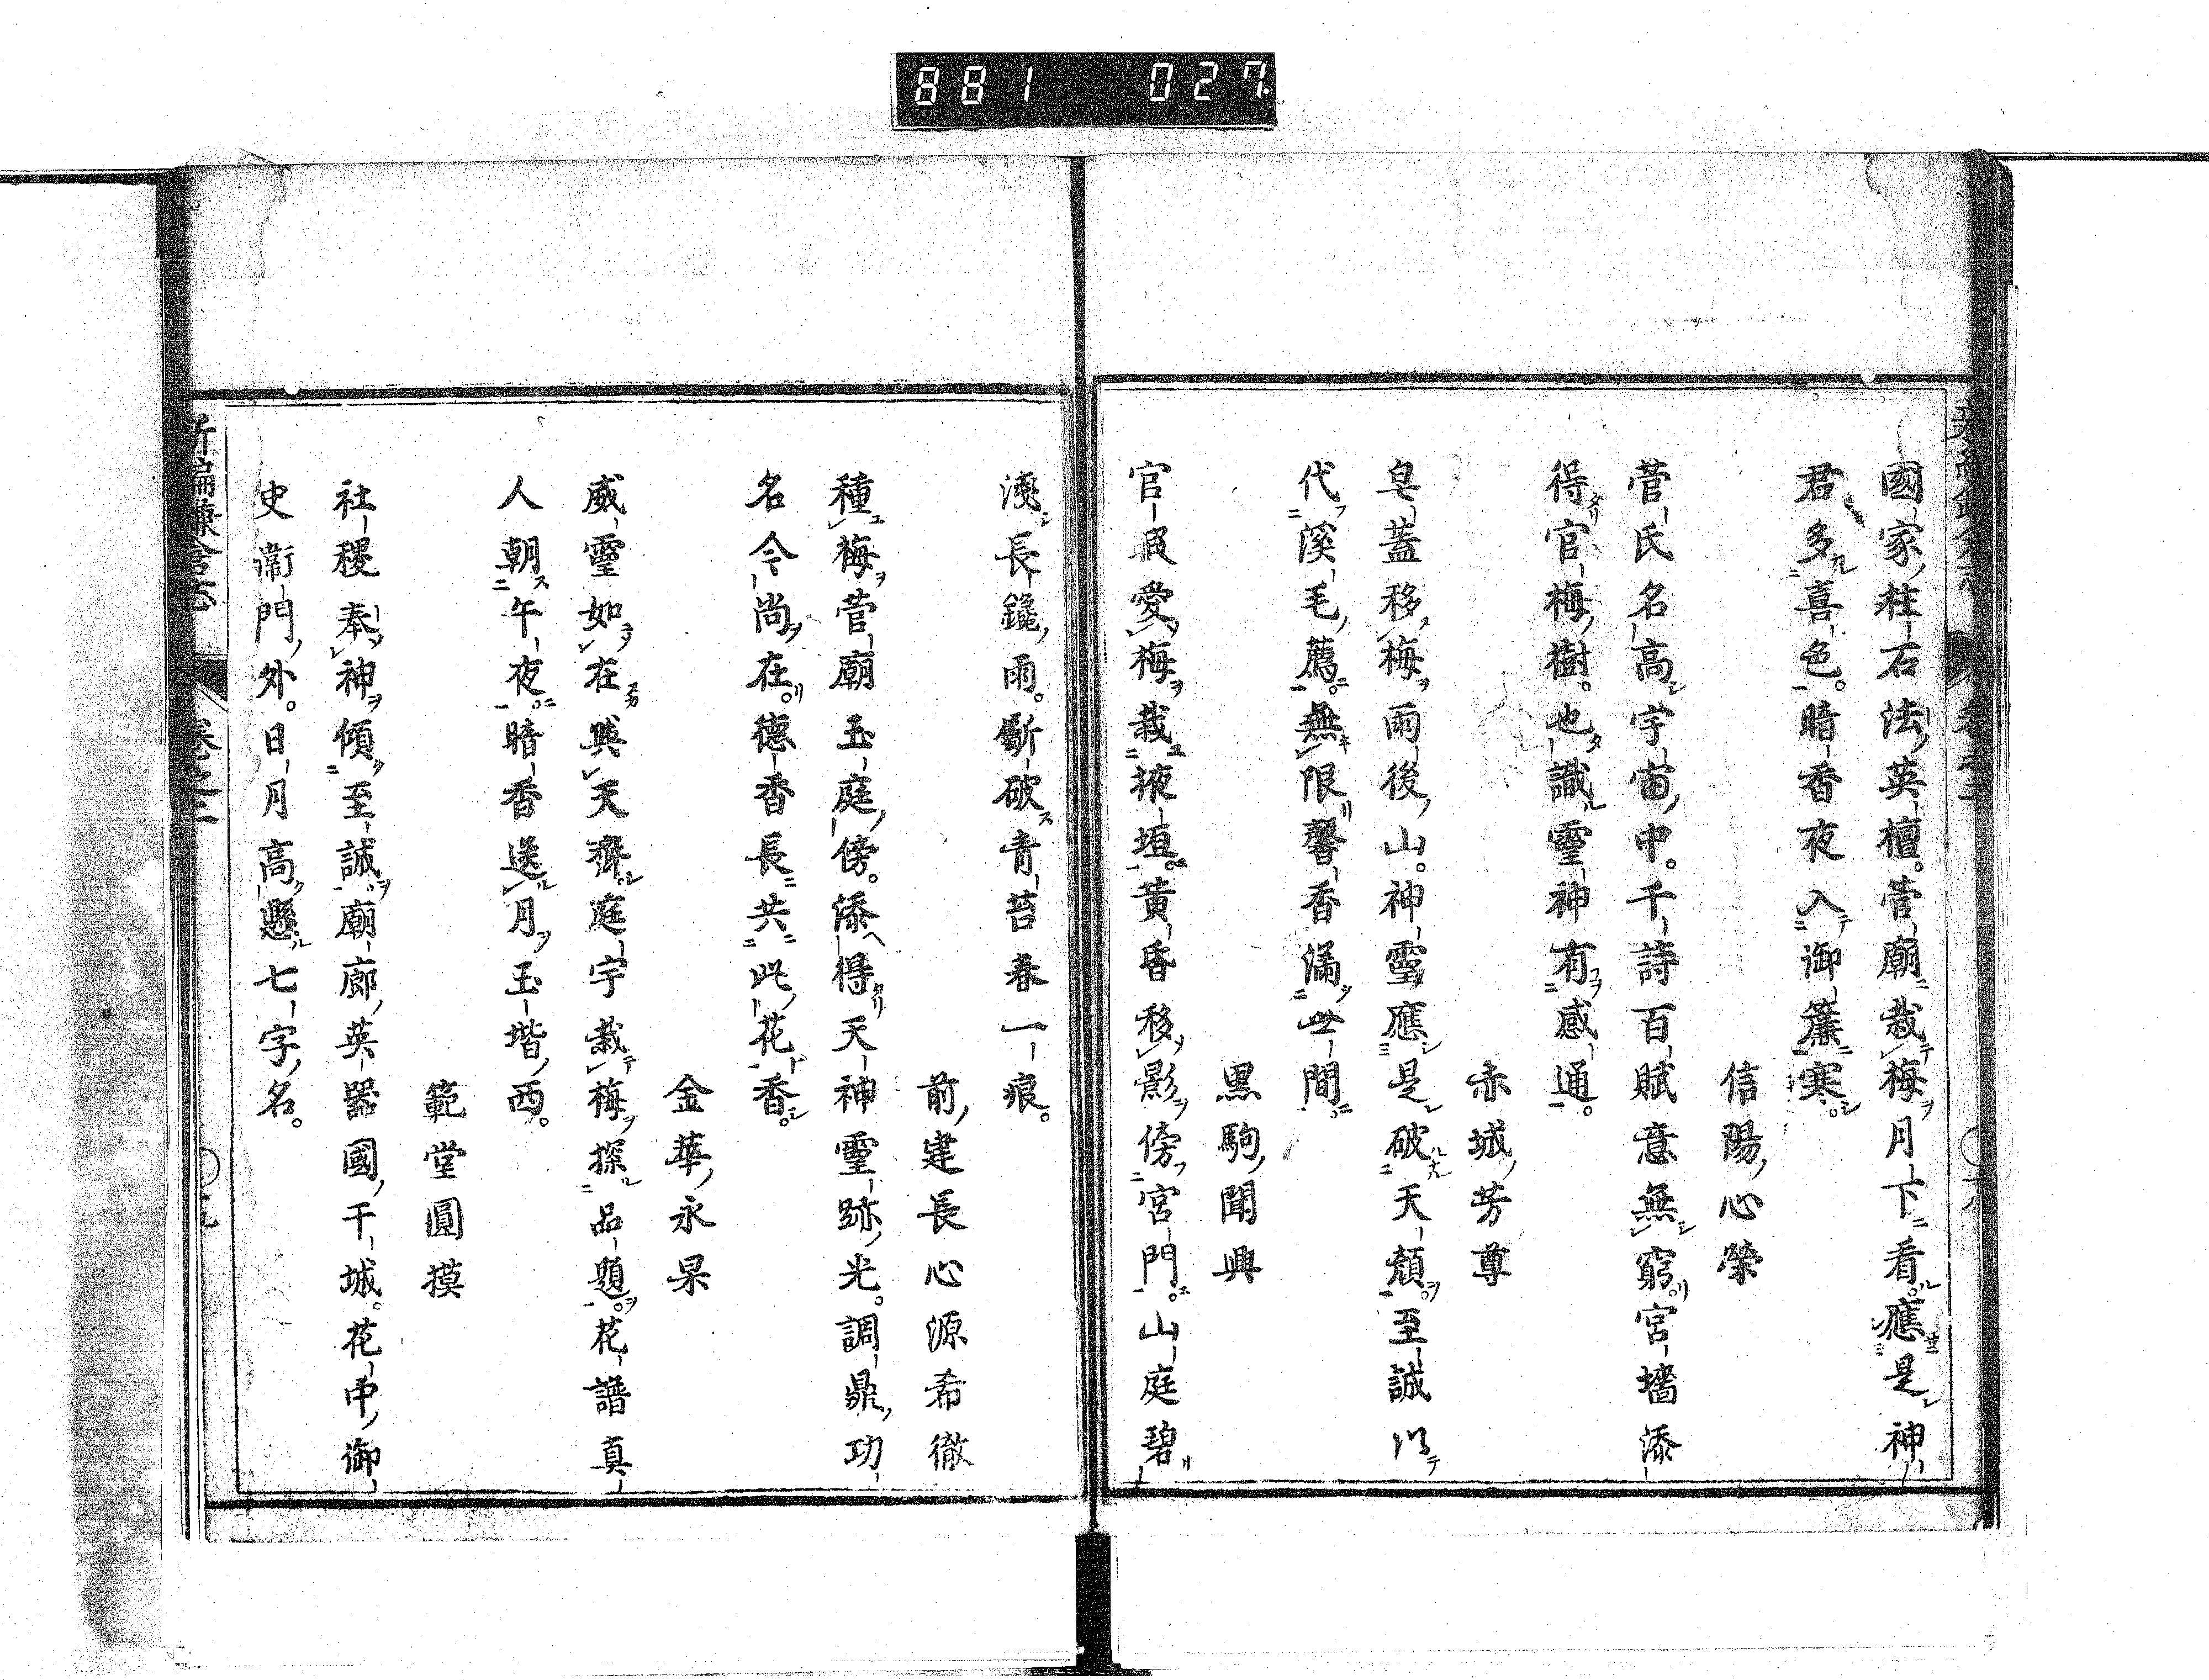 881 027
國家柱石法英檀。菅廟栽梅月下看。應是神
君多喜色。暗香夜入御簾寒。
信陽心榮
菅氏名高宇宙中。千詩百賦意無窮。宮墻添
得官梅樹。也識靈神有感通。
赤城芳尊
皂蓋移梅雨後山。神靈應是破天顏。至誠以
代溪毛薦。無限馨香滿世間。
黒駒聞興
官暇愛梅栽掖垣。黄昏移影傍宮門。山庭碧
湊長鑱雨。斸破青苔春一痕。
前建長心源希徹
種梅菅廟玉庭傍。添得天神靈跡光。調鼎功
名今尚在。德香長共此花香。
金華永杲
威靈如在與天齊。庭宇栽梅探品題。花譜真
人朝午夜。暗香送月玉堦西。
範堂圓模
社稷奉神傾至誠。廟廊英器國干城。花中御
史衞門外。日月高懸七字名。
新編鎌倉志 卷之二